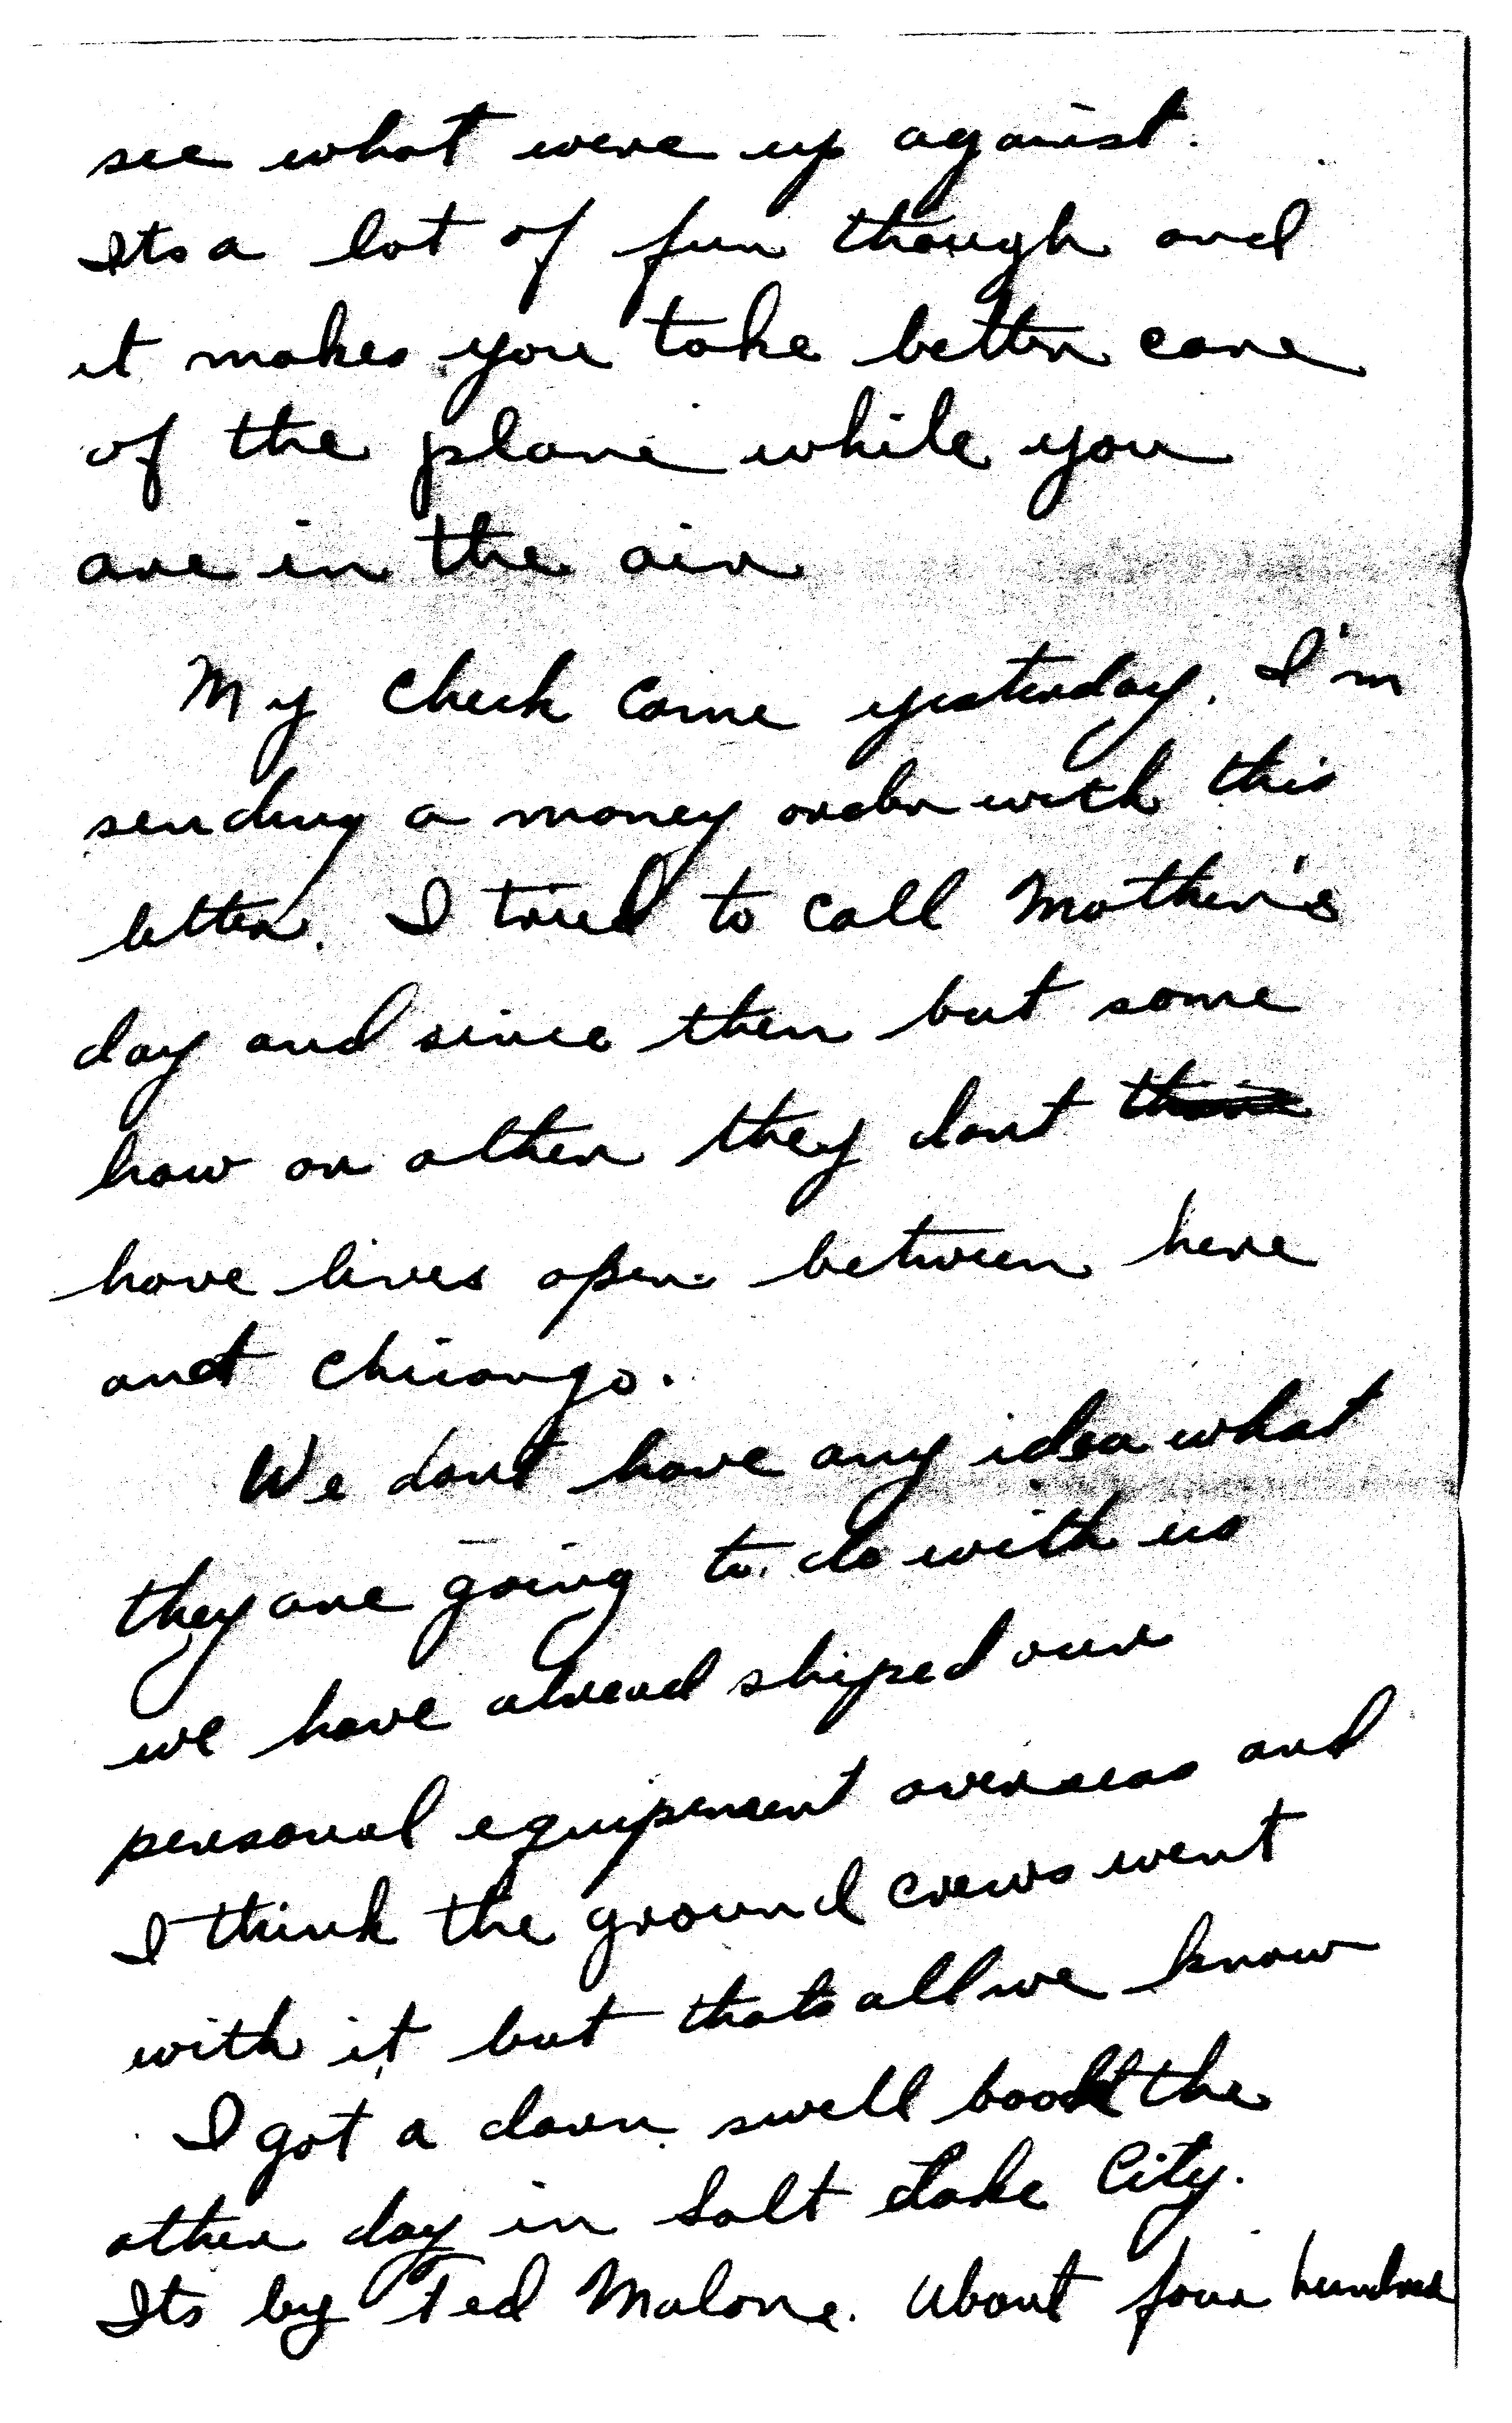 see what were up against.
Its a lot of fun though and
it makes you take better care
of the plane while you
are in the air
My check came yesterday. I'm
sending a money order with this
letter. I tried to call Mother's
day and since then but some
how or other they dont
have lines open between here
and Chicango.
We dont have any idea what
they are going to do with us
we have alread shiped our
personal equipement overseas and
I think the ground crews went
with it but thats all we know
I got a darn swell book the
other day in Salt Lake City.
Its by Ted Malone. About four hundred